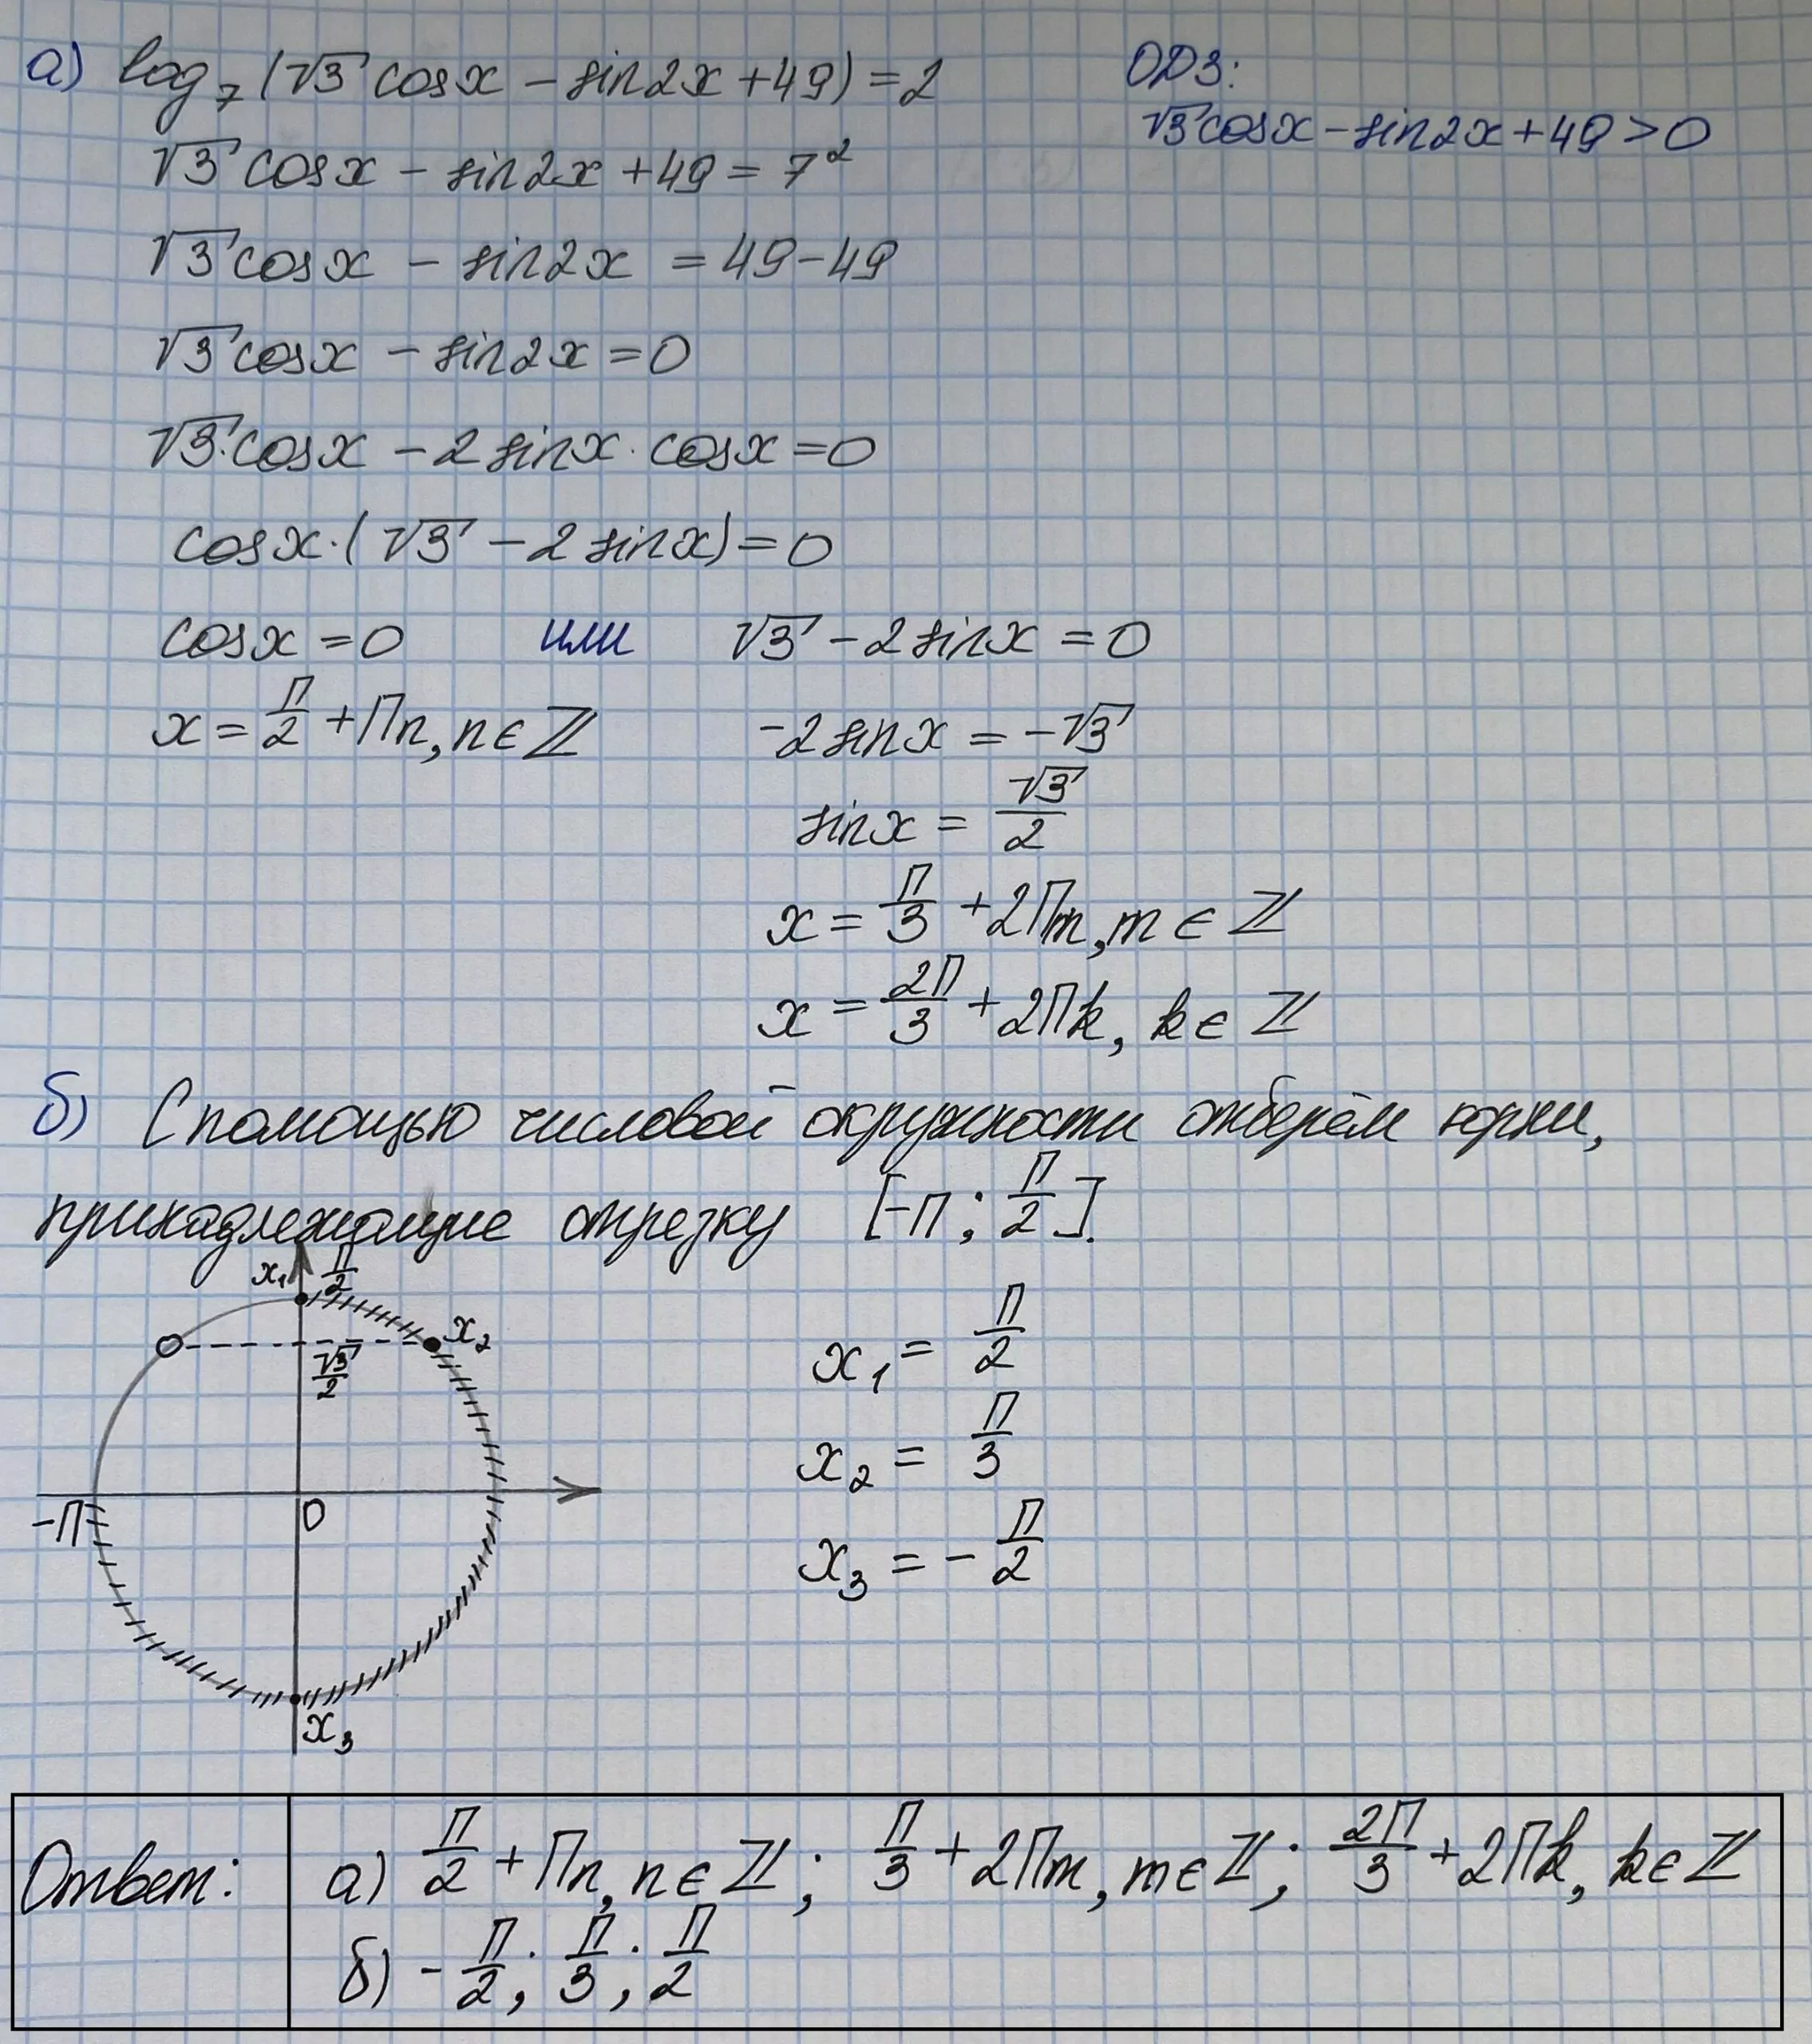 а) log₇(√3 cosx − sin2x + 49) = 2
ОДЗ:
√3cosx − sin2x + 49 > 0
√3 cosx − sin2x + 49 = 7²
√3cosx − sin2x = 49 − 49
√3cosx − sin2x = 0
√3·cosx − 2 sinx·cosx = 0
cosx·(√3 − 2 sinx) = 0
cosx = 0 или √3 − 2sinx = 0
x = П/2 + Пn, n∈ℤ
−2sinx = −√3
sinx = √3/2
x = П/3 + 2Пm, m∈ℤ
x = 2П/3 + 2Пk, k∈ℤ
б) С помощью числовой окружности отберём корни,
принадлежащие отрезку [−П; П/2].
x₁ П/2
x₂
√3/2
−П
0
x₃
x₁ = П/2
x₂ = П/3
x₃ = −П/2
Ответ: а) П/2 + Пn, n∈ℤ; П/3 + 2Пm, m∈ℤ; 2П/3 + 2Пk, k∈ℤ
б) −П/2; П/3; П/2